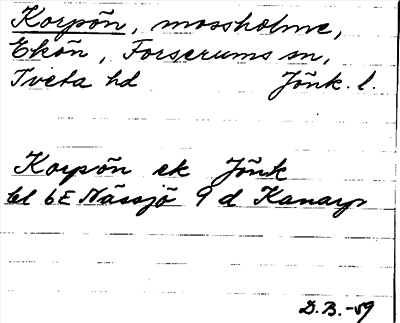 Korpön, mossholme,
Ekön, Forserums sn,
Tveta hd Jönk. l.
Korpön ek Jönk
bl 6E Nässjö 9 d Kanarp
D.B.-59